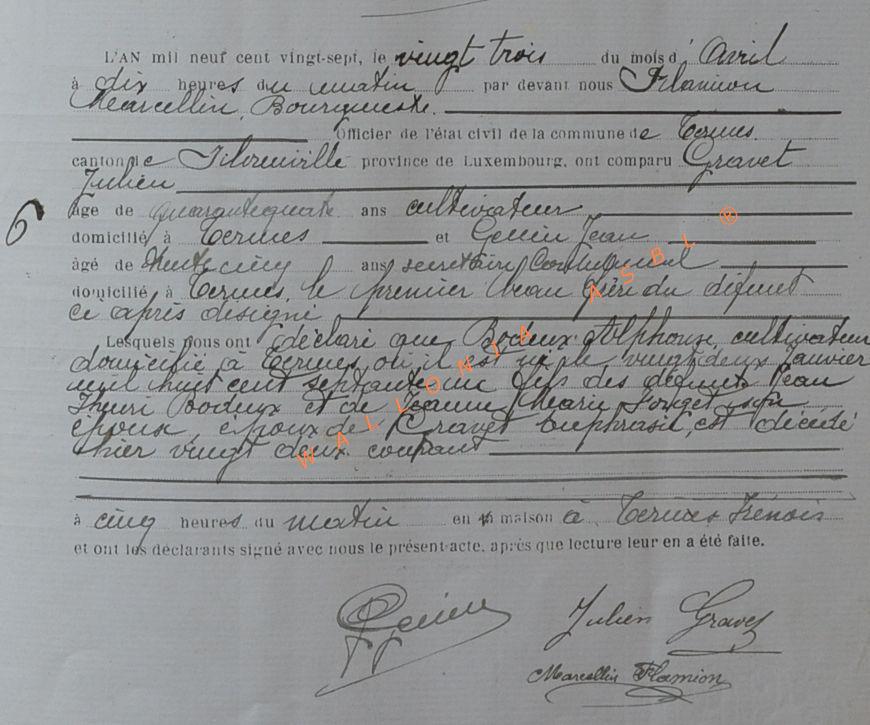 L'AN mil neuf cent vingt-sept, le vingt trois du mois d'Avril
à dix heures du matin par devant nous Flamion
Marcellin, Bourgmestre.
Officier de l'état civil de la commune de Termes.
canton de Florenville province de Luxembourg, ont comparu Gravet
Julien
âgé de quarantequatre ans cultivateur
domicilié à Termes et Jean
âgé de trentecinq ans secrétaire communal
domicilié à Termes, le premier beau frère du défunt
ci après désigné
Lesquels nous ont déclaré que Bodeux Alphonse, cultivateur
domicilié à Termes où il est né le vingtdeux Janvier
mil huit cent septante un fils des défunts Jean
Henri Bodeux et de Jeanne Marie son
épouse, époux de Gravet Euphrasie, est décédé
hier vingt deux courant
à cinq heures du matin en maison à Termes Frenois
et ont les déclarants signé avec nous le présent acte, après que lecture leur en a été faite.
6
Julien Gravet
Marcellin Flamion
WALLONIA ASBL ®